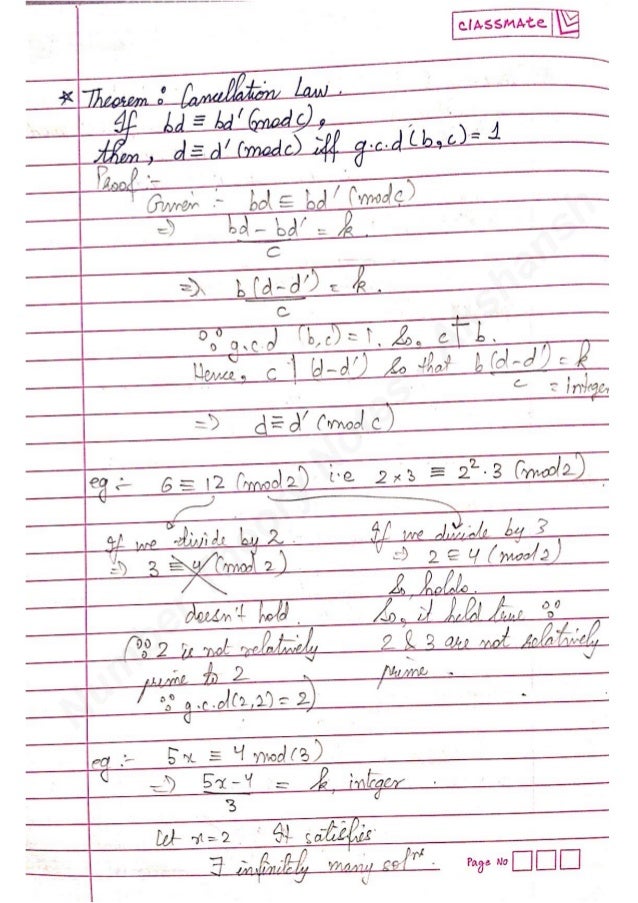 classmate
* Theorem : Cancellation Law.
If bd ≡ bd' (mod c),
then, d ≡ d' (mod c) iff g.c.d (b, c) = 1
Proof :-
Given :- bd ≡ bd' (mod c)
=> bd - bd' / c = k.
=> b(d-d') / c = k.
∵ g.c.d (b,c) = 1. So, c ∤ b.
Hence, c | (d-d') So that b(d-d') / c = k
= Integer
=> d ≡ d' (mod c)
eg :- 6 ≡ 12 (mod 2) i.e 2 x 3 ≡ 2². 3 (mod 2)
If we divide by 2
=> 3 ≡ 4 (mod 2)
doesn't hold.
(∵ 2 is not relatively
prime to 2
∵ g.c.d (2,2) = 2)
If we divide by 3
=> 2 ≡ 4 (mod 2)
So, holds.
So, it held true ∵
2 & 3 are not relatively
prime.
eg :- 5x ≡ 4 mod (3)
=> 5x-4 / 3 = k, integer.
Let x = 2. It satisfies
∃ infinitely many solⁿˢ.
Page No